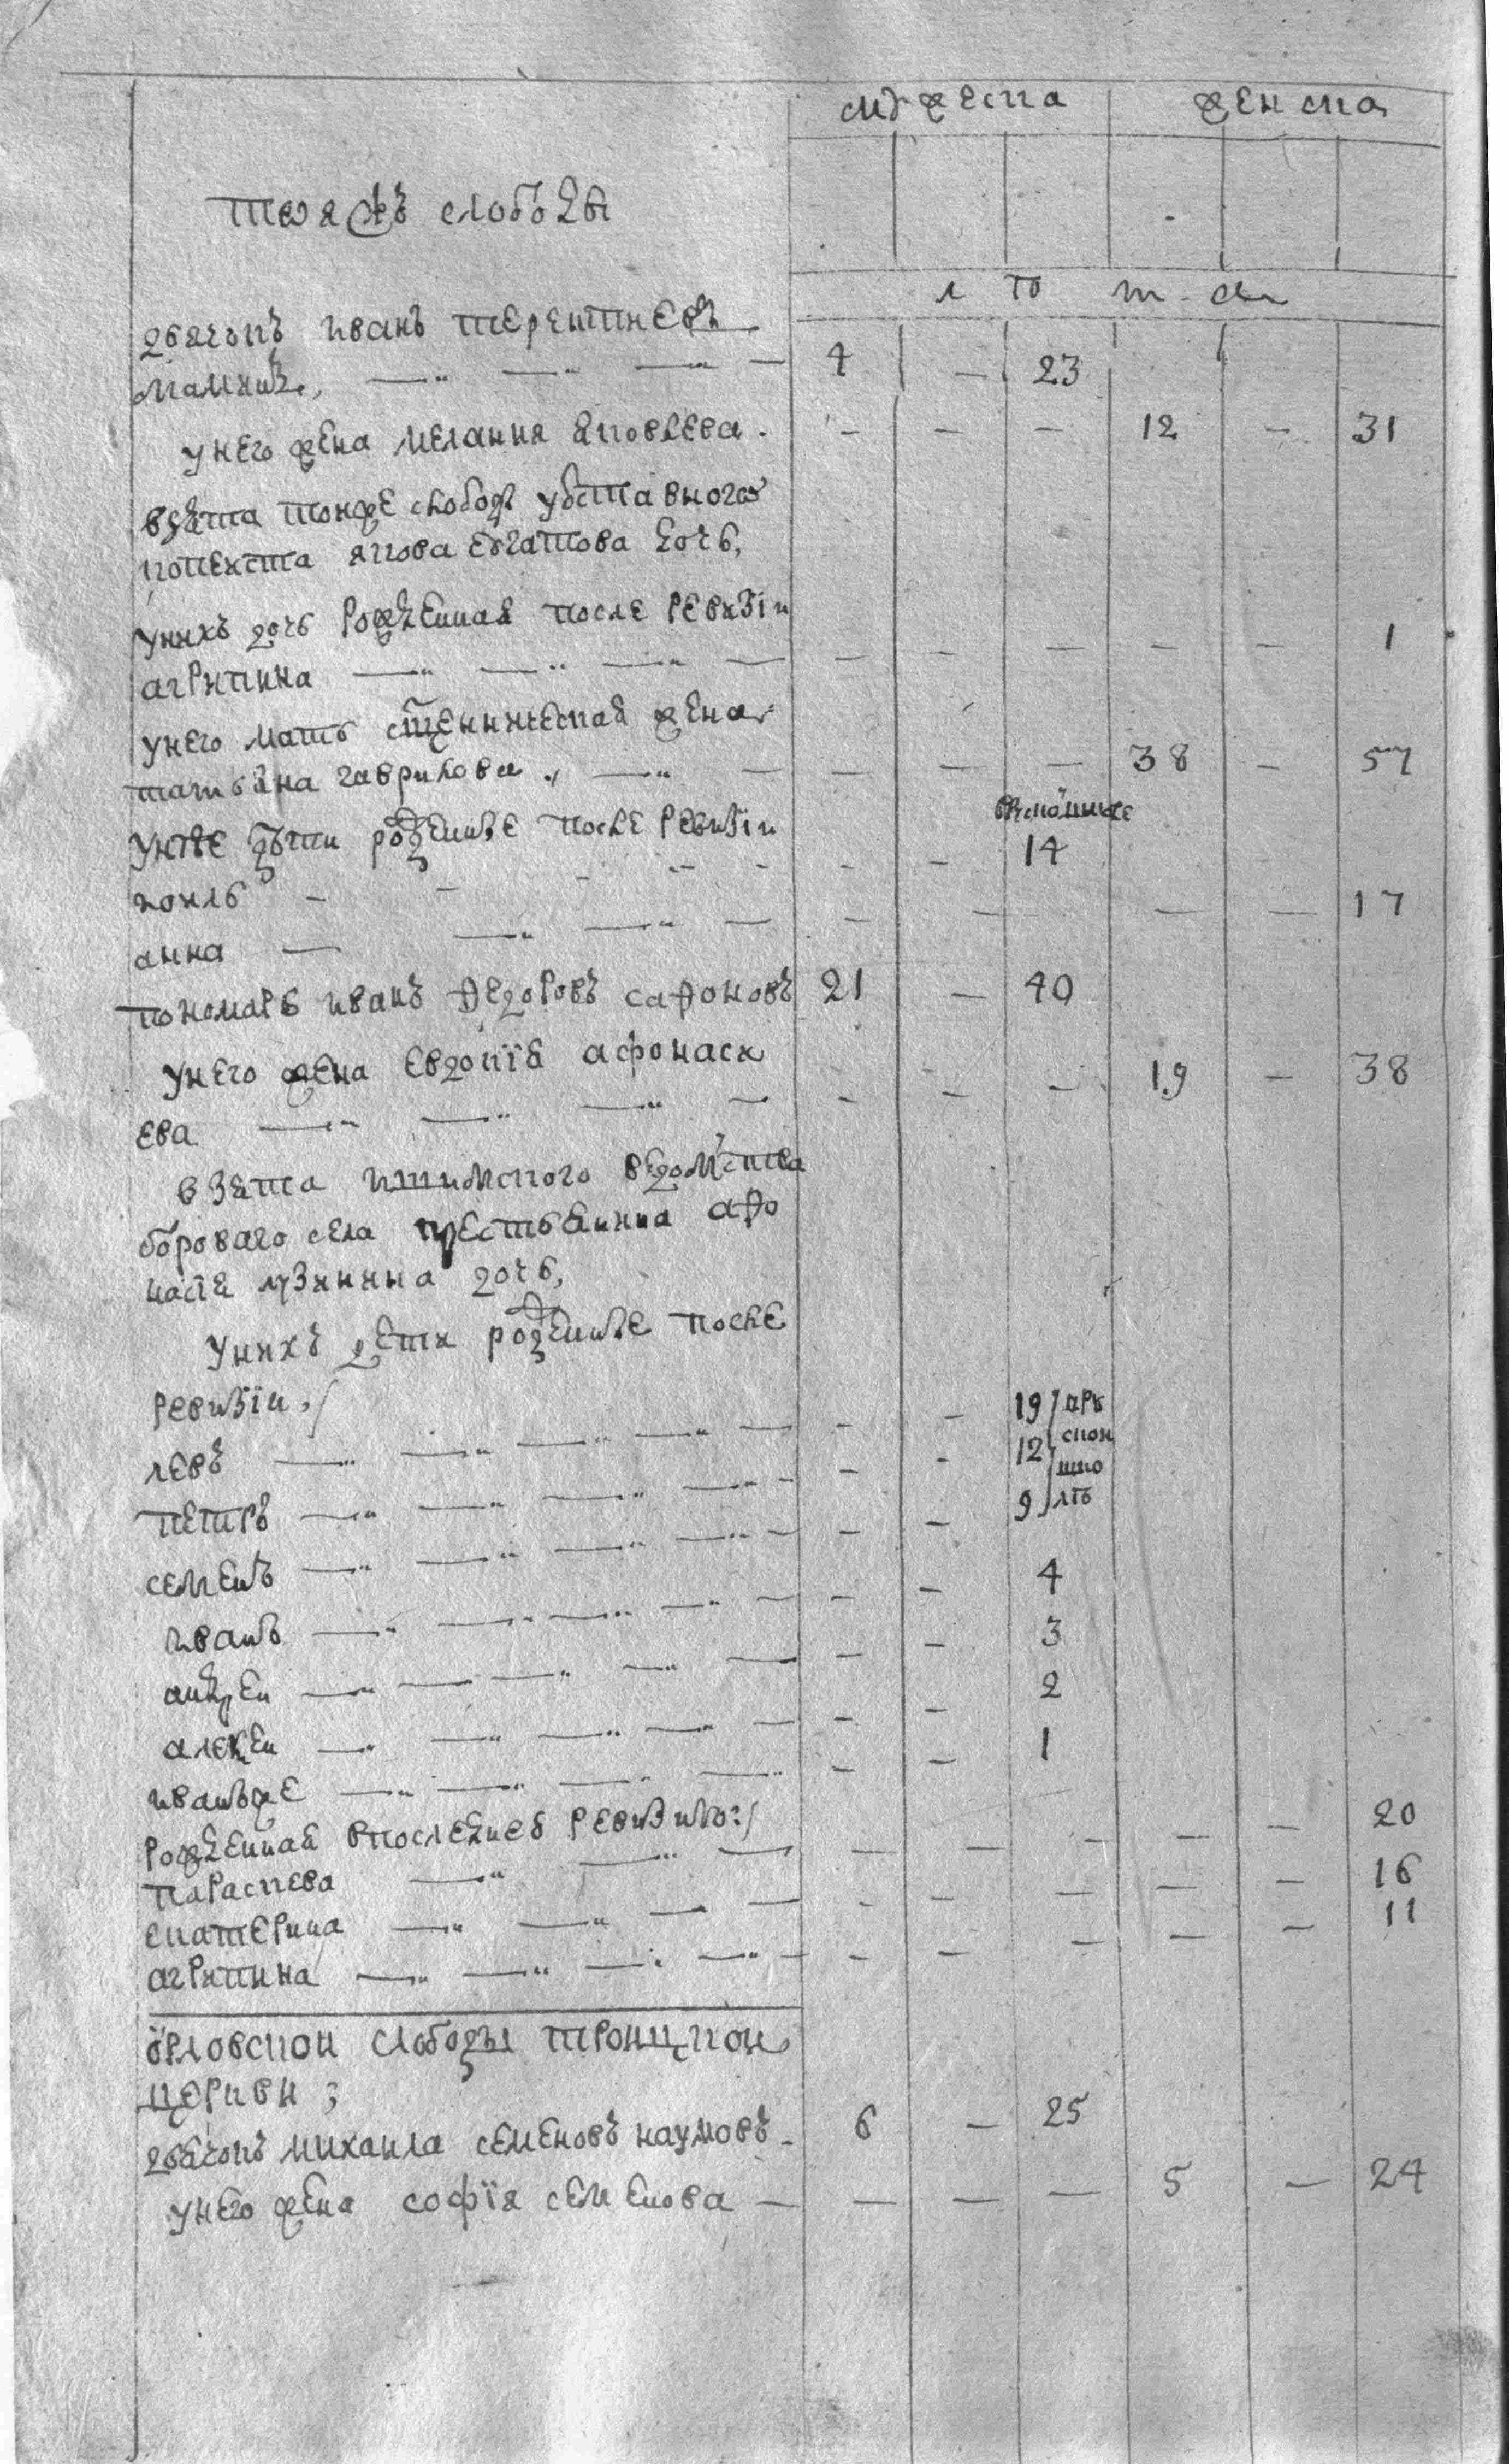 мужеска женска
тояжъ слободы
л ѣ т а
дьячокъ иванъ терентиевъ
мамкинъ 4 — 23
у него жена мелания яковлева — — — 12 — 31
взята тоиже слободы
якова дочь
у нихъ дочь рожденная после ревизiи
агрипина — — — — — 1
у него мать сщенническая жена
татьяна гаврилова — — — 38 — 57
у нее дети рожденные после ревизiи
иоиль — — 14
анна — — — — 17
пономарь иванъ федоровъ сафоновъ 21 — 40
у него жена евдокïя афонаси
ева — — — 19 — 38
взята ишимского ведомства
борового села крестьянина афо
насïя лузинина дочь
у нихъ дети рожденные после
ревизïи
левъ — — 19
петръ — — 12
семенъ — — 9
иванъ — — 4
андреи — — 3
алексеи — — 2
иванъже — — 1
рожденная после ревизии
параскева — — — — — 20
екатерина — — — — — 16
агрипина — — — — — 11
орловскои слободы троицкои
церкви
дьячокъ михаила семеновъ наумовъ 6 — 25
у него жена софïя семенова — — — 5 — 24